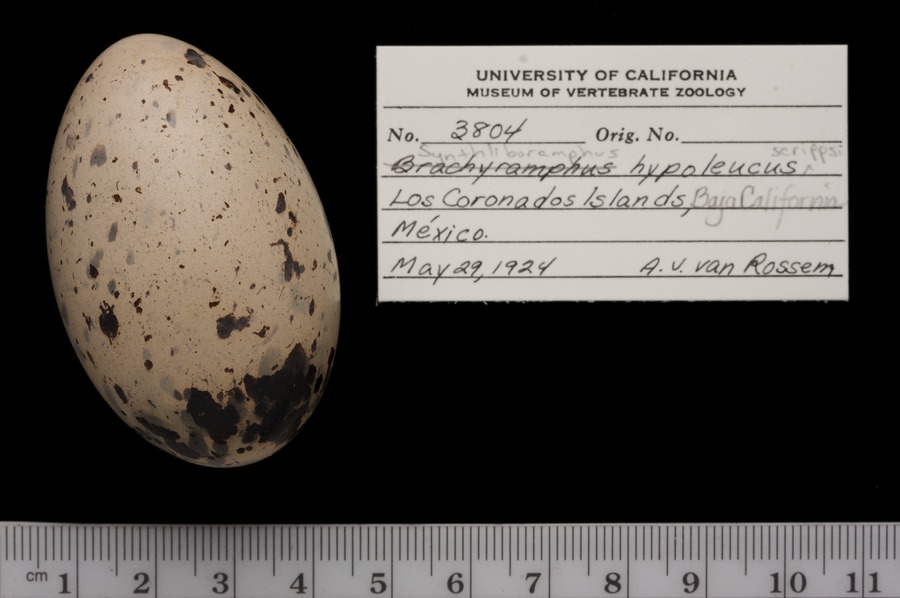 UNIVERSITY OF CALIFORNIA
MUSEUM OF VERTEBRATE ZOOLOGY
No. 3804 Orig. No.
Synthliboramphus scrippsi
Brachyramphus hypoleucus
Los Coronados Islands, Baja California
México.
May 29, 1924 A. J. van Rossem
cm 1 2 3 4 5 6 7 8 9 10 11